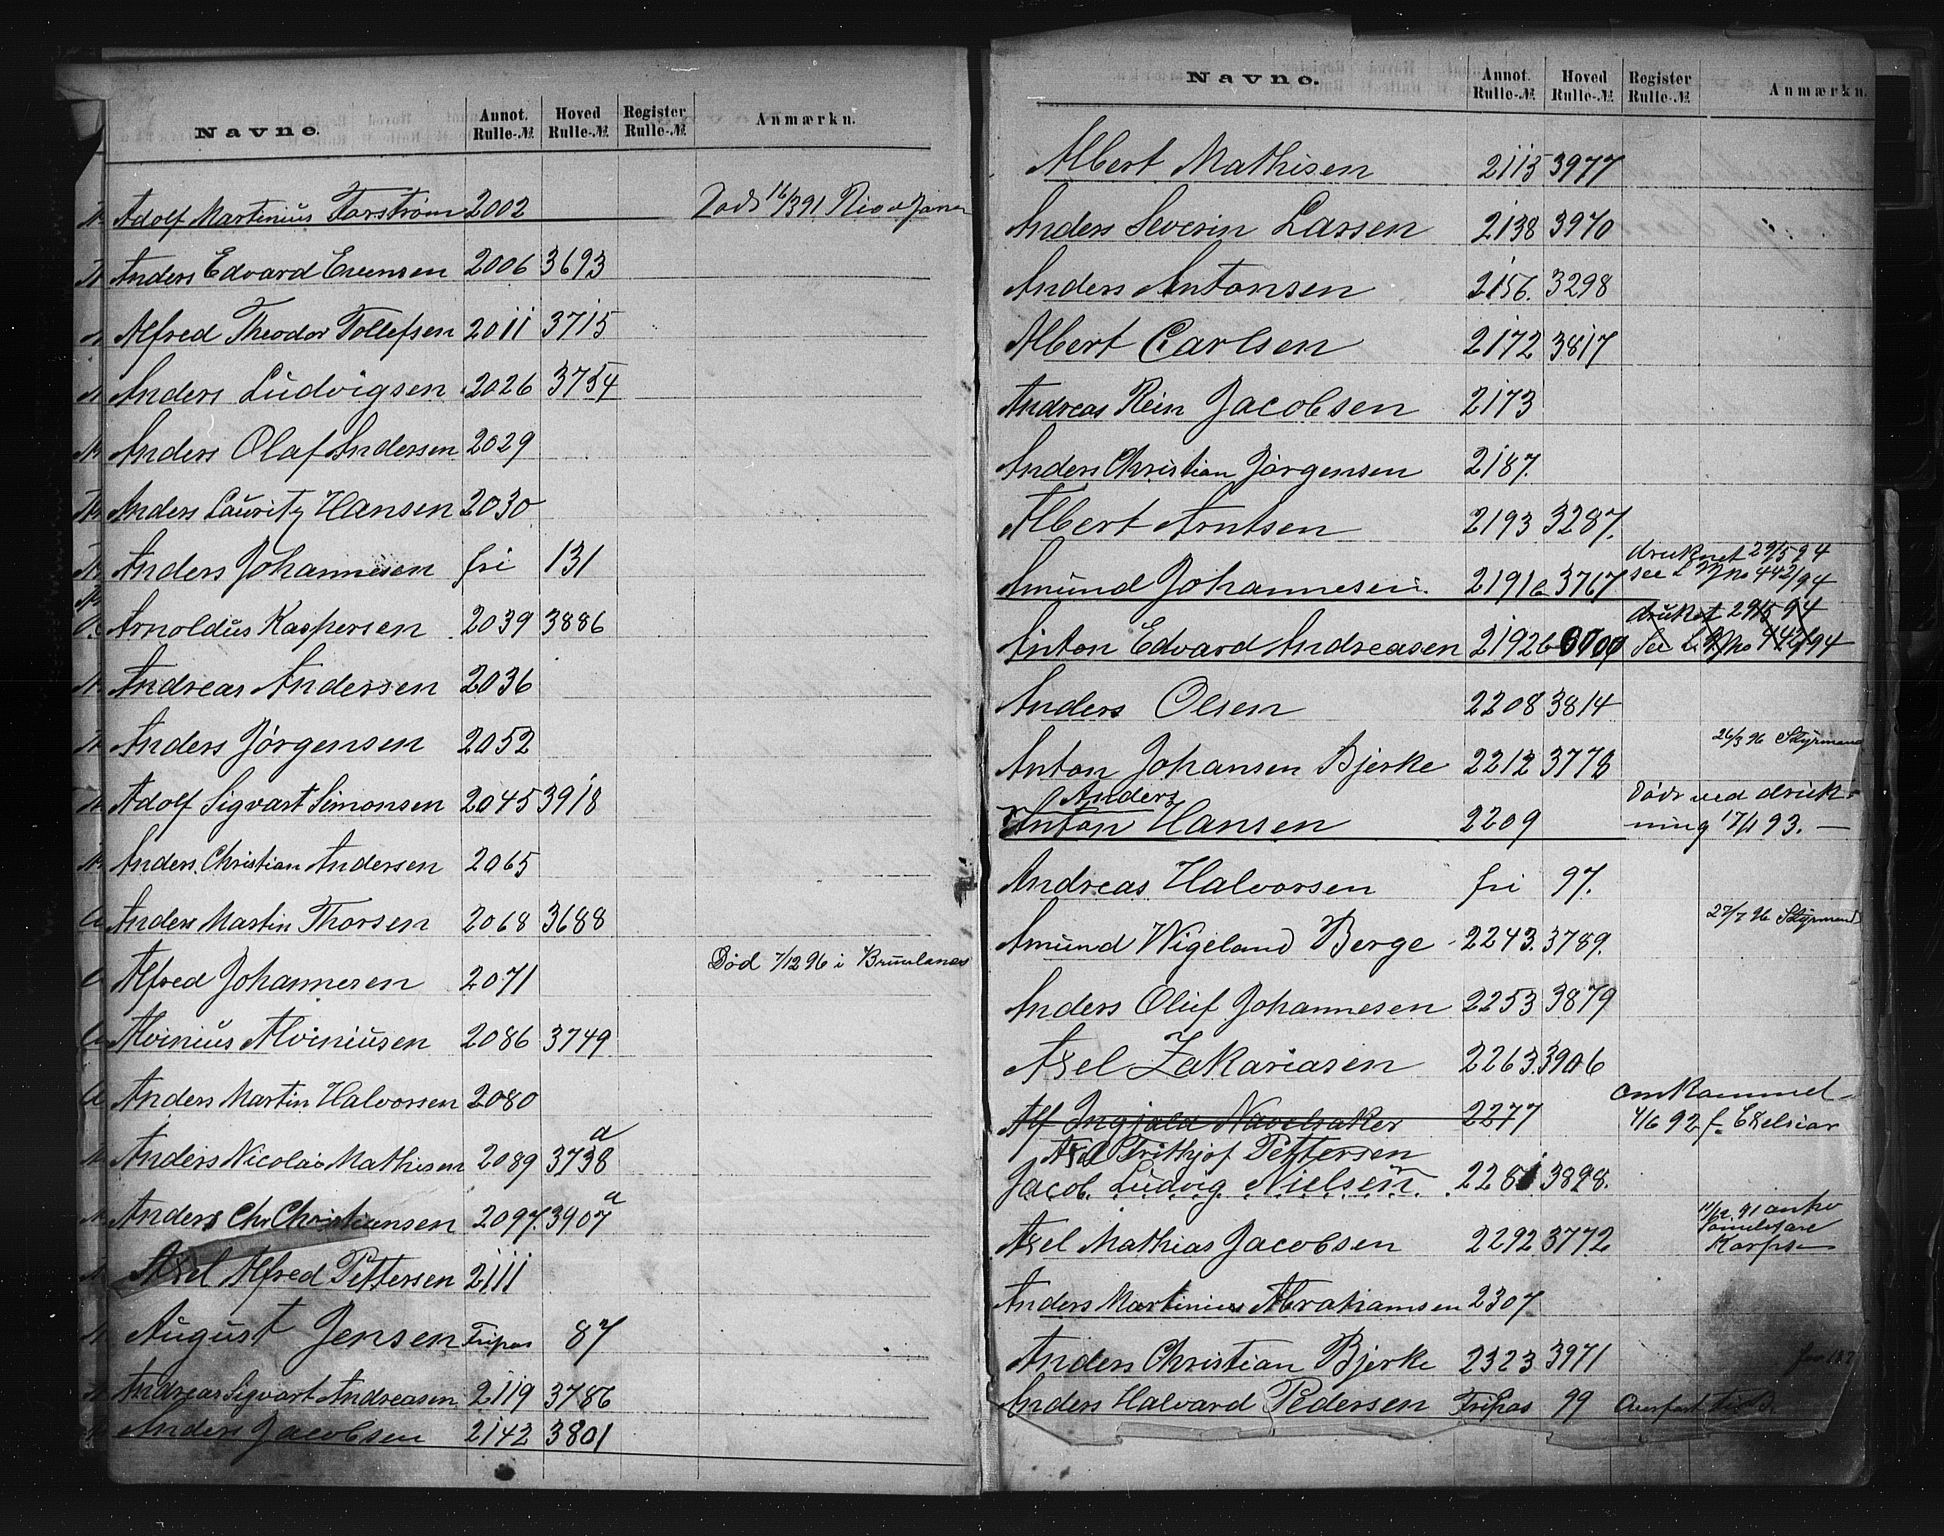 Navne. Annot. Rulle-№ Hoved Rulle-№ Register Rulle-№ Anmærkn.
Adolf Martinius Torstrøm 2002 Død 16/3 91 Rio d Janer
Anders Edvard Evensen 2006 3693
Alfred Theodor Tollefsen 2011 3715
Anders Ludvigsen 2026 3754
Anders Olaf Andersen 2029
Anders Lauritz Hansen 2030
Anders Johannesen fri 131
Arnoldus Kaspersen 2039 3886
Andreas Andersen 2036
Anders Jørgensen 2052
Adolf Sigvart Simonsen 2045 3918
Anders Christian Andersen 2065
Anders Martin Thorsen 2068 3688
Alfred Johannesen 2071 Død 7/12 96 i Brunlanes
Alvinius Alviniusen 2086 3749
Anders Martin Halvorsen 2080
Anders Nicolai Mathisen 2089 3738 a
Anders Chr. Christiansen 2097. 3907 a
Axel Alfred Pettersen 2111
August Jensen Fripas 87
Andreas Sigvart Andreasen 2119 3786
Anders Jacobsen 2142 3801
Navne. Annot. Rulle-№ Hoved Rulle-№ Register Rulle-№ Anmærkn.
Albert Mathisen 2115 3977
Anders Severin Larsen 2138 3970
Anders Antonsen 2156. 3298
Albert Carlsen 2172 3817
Andreas Rein Jacobsen 2173
Anders Christian Jørgensen 2187.
Albert Arntsen 2193 3287.
druknet 29/5 94
Amund Johannesen 2191 b 3767 see L No 442/94
druknet 29/5 94
Anton Edvard Andreasen 2192 b See L No 442/94
Anders Olsen 2208 3814
26/3 96 Styrmand
Anton Johansen Bjerke 2212 3778
Anders Døds ved druk-
Anton Hansen 2209 ning 17/1 93. —
Andreas Halvorsen fri 97.
27/7 96 Styrmand
Amund Wigeland Berge 2243. 3789.
Anders Oluf Johannesen 2253 3879
Axel Zakariasen 2263. 3906
omkommet
Alf Ingjald Navelsaker 2277 4/6 92 f. Exelsior
Axel Frithjof Pettersen
Jacob Ludvig Nielsen 2281 3898.
Axel Mathias Jacobsen 2292 3772 11/12 91
Korps
Anders Martinius Abrahamsen 2307
Anders Christian Bjerke 2323 3971
Anders Halvard Pedersen Fripas 99 Overført